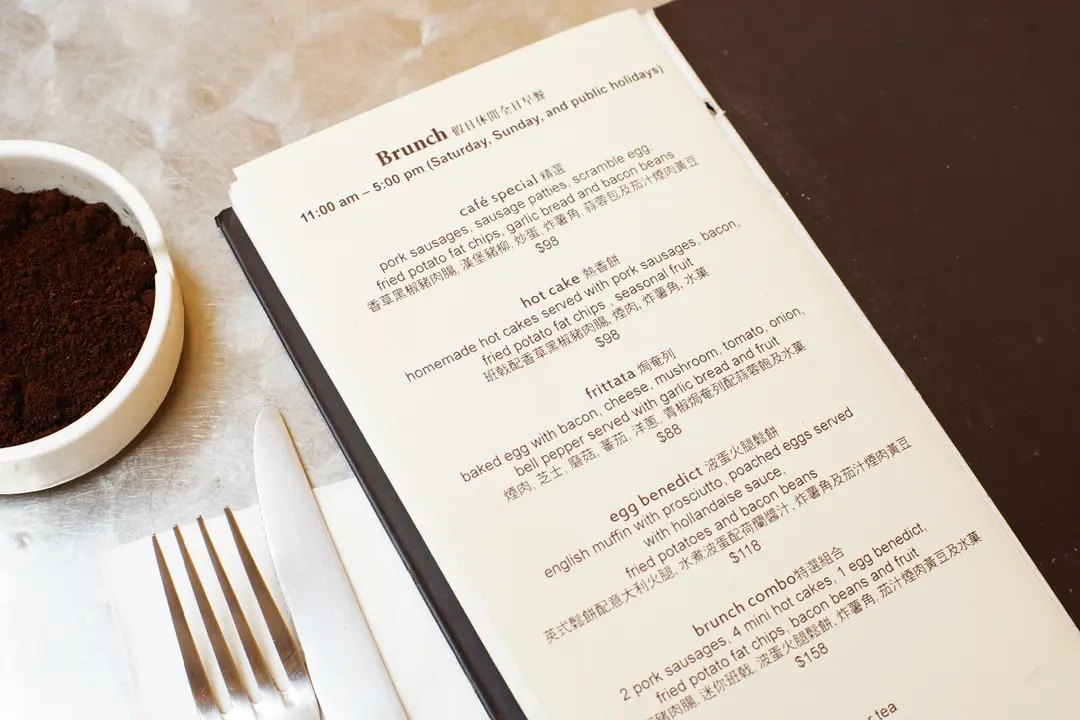 Brunch 假日休閒全日早餐
11:00 am – 5:00 pm (Saturday, Sunday, and public holidays)
café special 精選
pork sausages, sausage patties, scramble egg,
fried potato fat chips, garlic bread and bacon beans
香草黑椒豬肉腸, 漢堡豬柳, 炒蛋, 炸薯角, 蒜蓉包及茄汁煙肉黃豆
$98
hot cake 熱香餅
homemade hot cakes served with pork sausages, bacon,
fried potato fat chips , seasonal fruit
班戟配香草黑椒豬肉腸, 煙肉, 炸薯角, 水菓
$98
frittata 焗奄列
baked egg with bacon, cheese, mushroom, tomato, onion,
bell pepper served with garlic bread and fruit
煙肉, 芝士, 磨菇, 蕃茄, 洋蔥, 青椒焗奄列配蒜蓉飽及水菓
$88
egg benedict 波蛋火腿鬆餅
english muffin with prosciutto, poached eggs served
with hollandaise sauce,
fried potatoes and bacon beans
英式鬆餅配意大利火腿, 水煮波蛋配荷蘭醬汁, 炸薯角及茄汁煙肉黃豆
$118
brunch combo特選組合
2 pork sausages, 4 mini hot cakes, 1 egg benedict,
fried potato fat chips, bacon beans and fruit
豬肉腸, 迷你班戟, 波蛋火腿鬆餅, 炸薯角, 茄汁煙肉黃豆及水菓
$158
tea